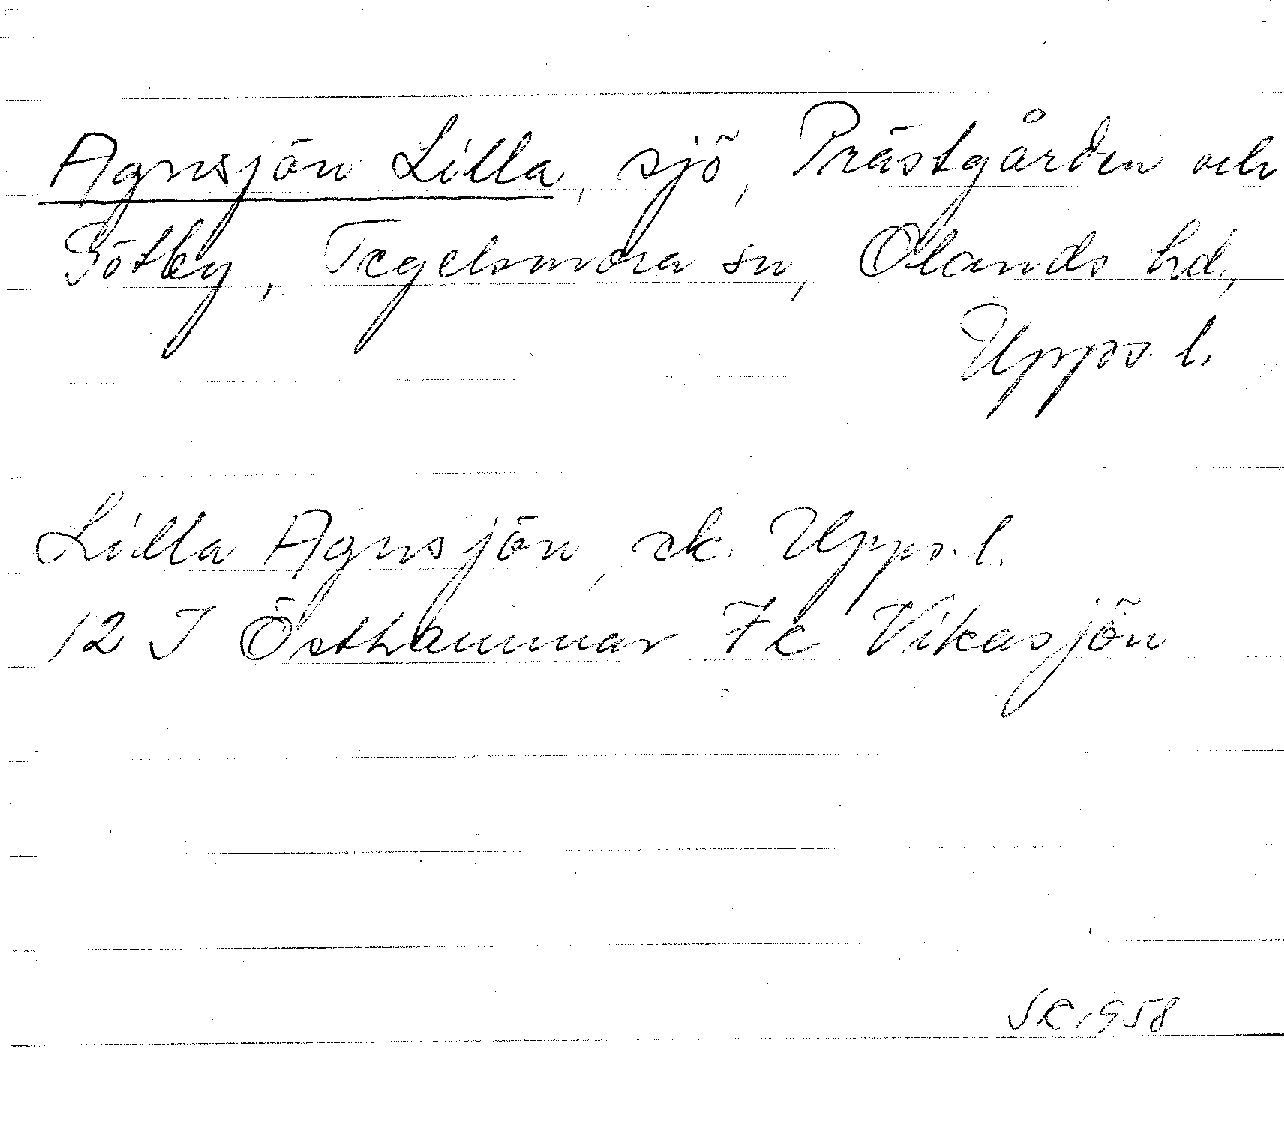 Agnsjön Lilla, sjö, Prästgården och
Götby, Tegelsmora sn, Olands hd,
Upps. l.
Lilla Agnsjön, ek. Upps. l.
12 I Östhammar 7c Vikasjön
SR 1958